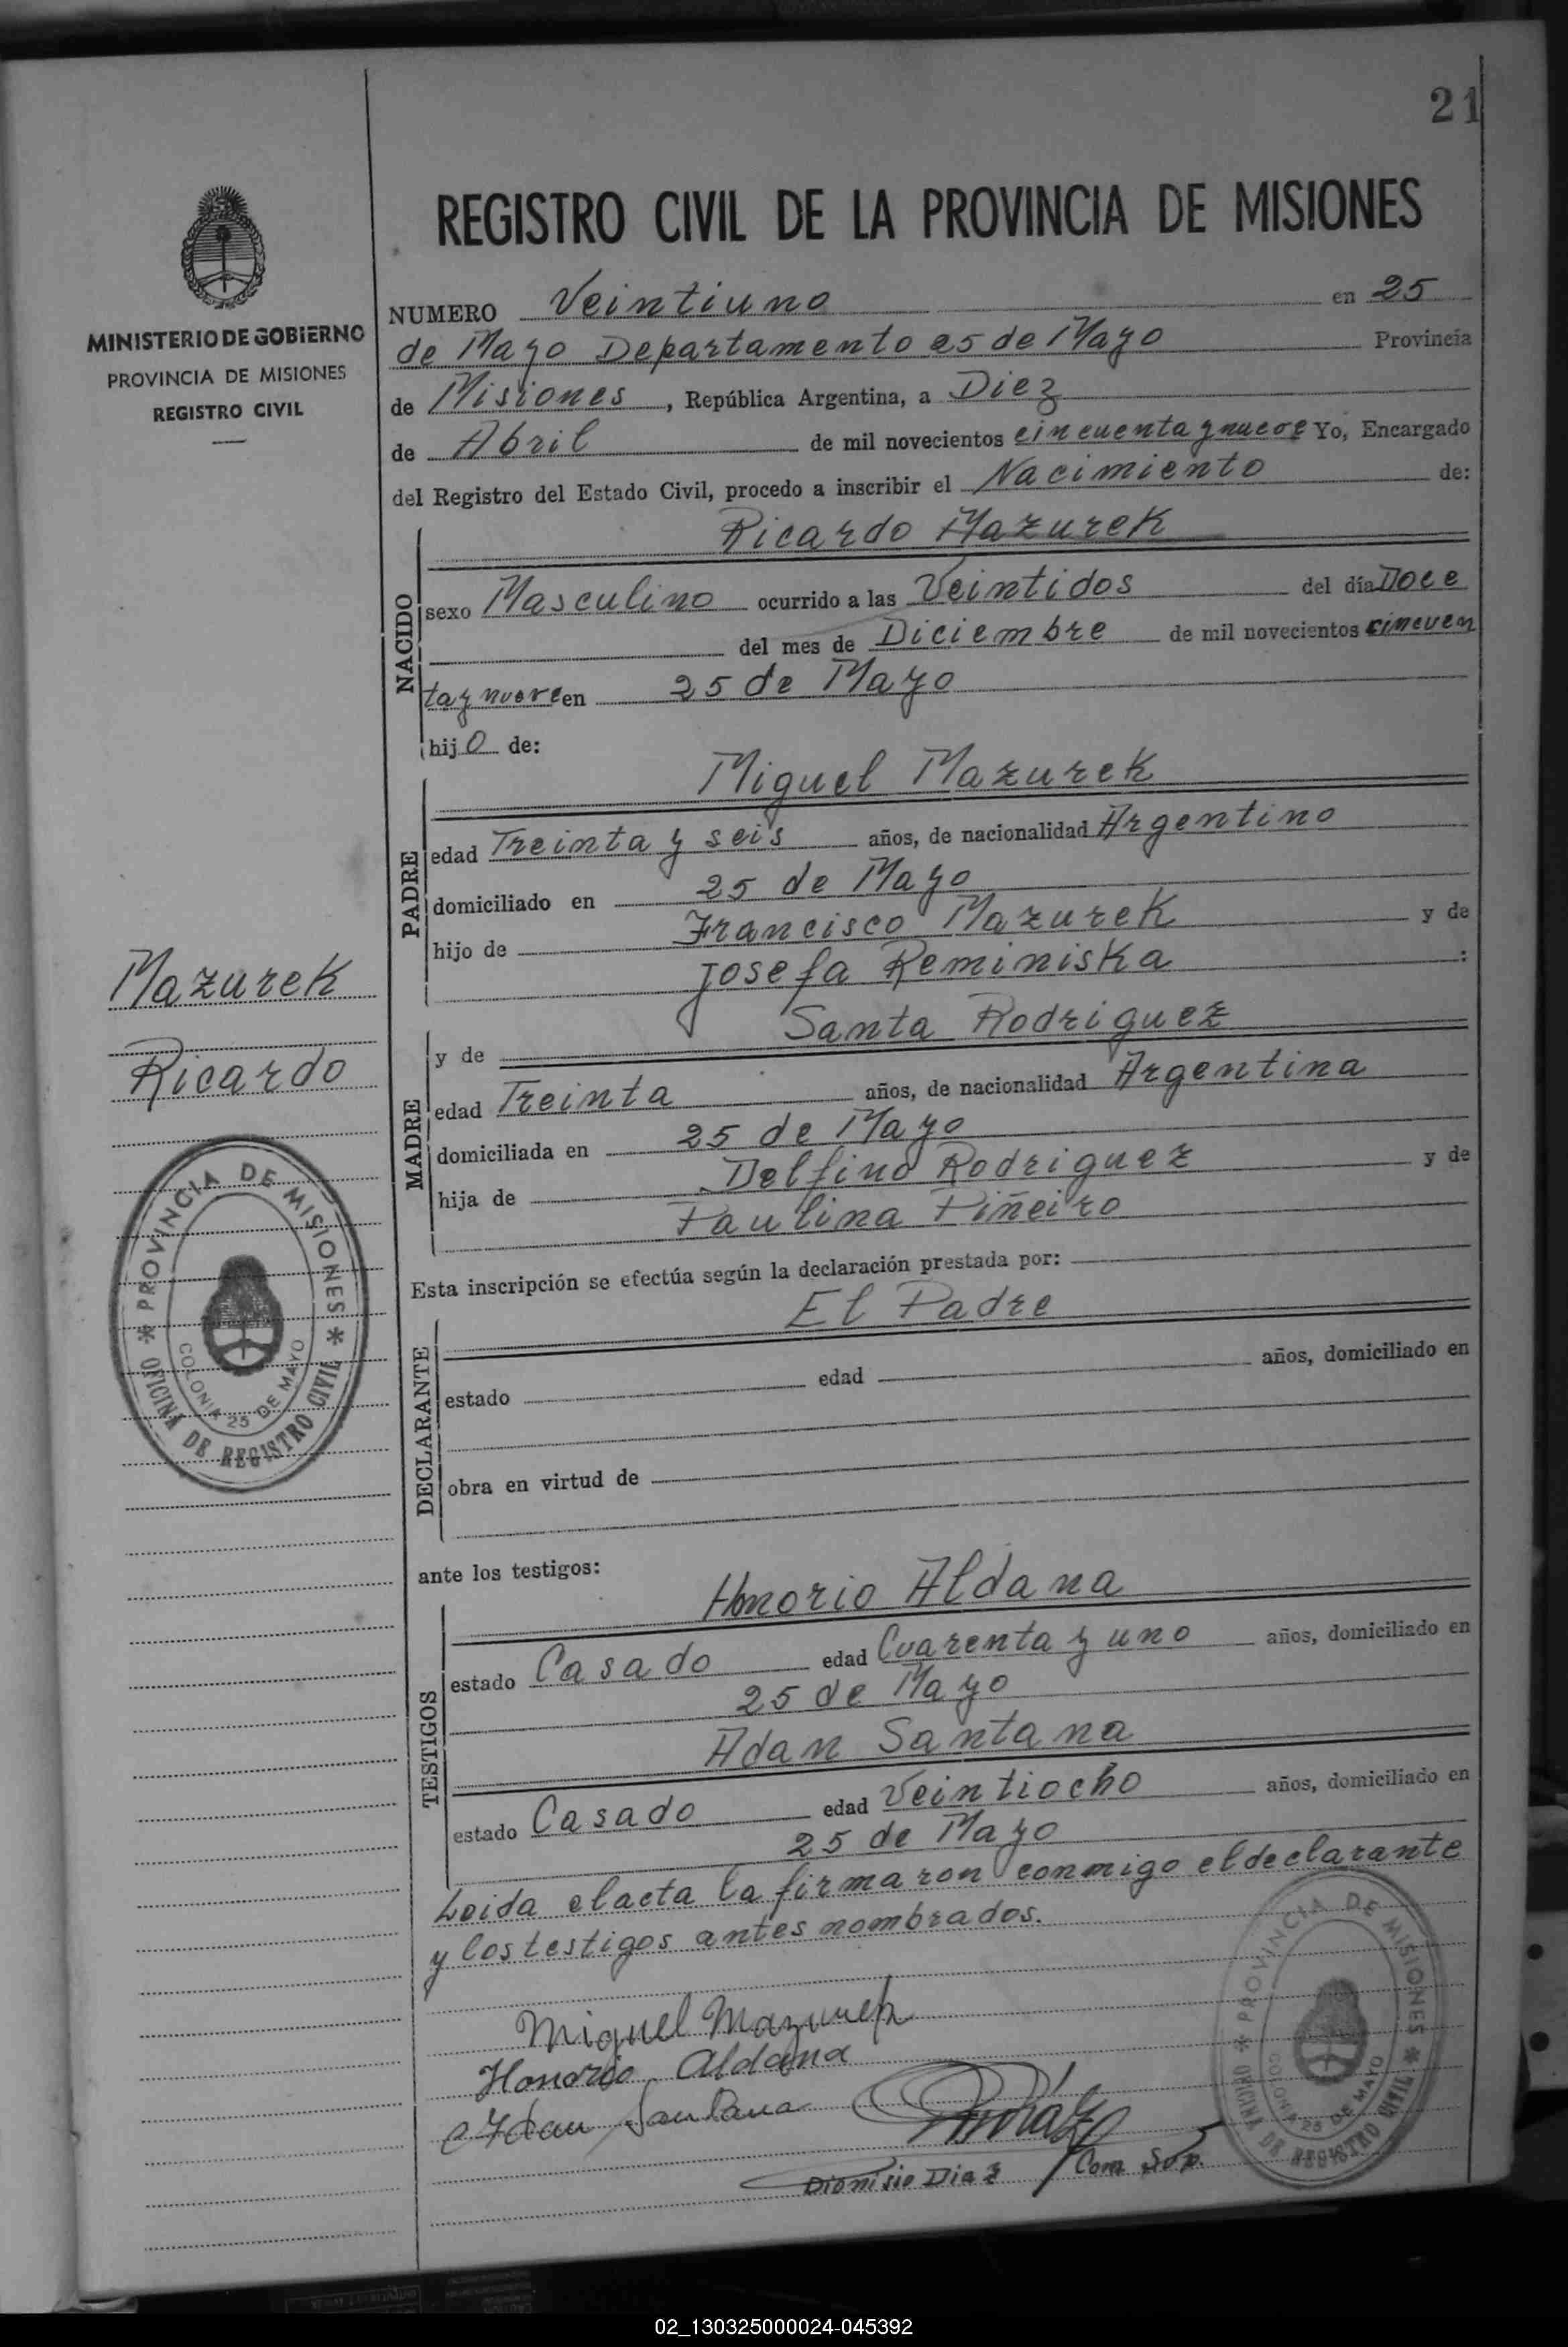 21
REGISTRO CIVIL DE LA PROVINCIA DE MISIONES
MINISTERIO DE GOBIERNO
PROVINCIA DE MISIONES
REGISTRO CIVIL
NUMERO Veintiuno en 25
de Mayo Departamento 25 de Mayo Provincia
de Misiones, República Argentina, a Diez
de Abril de mil novecientos cincuenta y nueve Yo, Encargado
del Registro del Estado Civil, procedo a inscribir el Nacimiento de:
NACIDO
Ricardo Mazurek
sexo Masculino ocurrido a las Veintidos del día Doce
del mes de Diciembre de mil novecientos cincuen
ta y nueve en 25 de Mayo
hijo de:
PADRE
Miguel Mazurek
edad Treinta y seis años, de nacionalidad Argentino
domiciliado en 25 de Mayo
hijo de Francisco Mazurek y de
Josefa Reminiska :
Mazurek
Ricardo
MADRE
y de Santa Rodriguez
edad Treinta años, de nacionalidad Argentina
domiciliada en 25 de Mayo
hija de Delfino Rodriguez y de
Paulina Piñeiro
PROVINCIA DE MISIONES
OFICINA DE REGISTRO CIVIL
COLONIA 25 DE MAYO
Esta inscripción se efectúa según la declaración prestada por:
DECLARANTE
El Padre
estado edad años, domiciliado en
obra en virtud de
ante los testigos:
TESTIGOS
Honorio Aldana
estado Casado edad Cuarenta y uno años, domiciliado en
25 de Mayo
Adan Santana
estado Casado edad Veintiocho años, domiciliado en
25 de Mayo
Leida el acta la firmaron conmigo el declarante
y los testigos antes nombrados.
Miguel Mazurek
Honorio Aldana
Adan Santana
Dionisio Diaz
Com. Sup.
PROVINCIA DE MISIONES
OFICINA DE REGISTRO CIVIL
COLONIA 25 DE MAYO
02_130325000024-045392